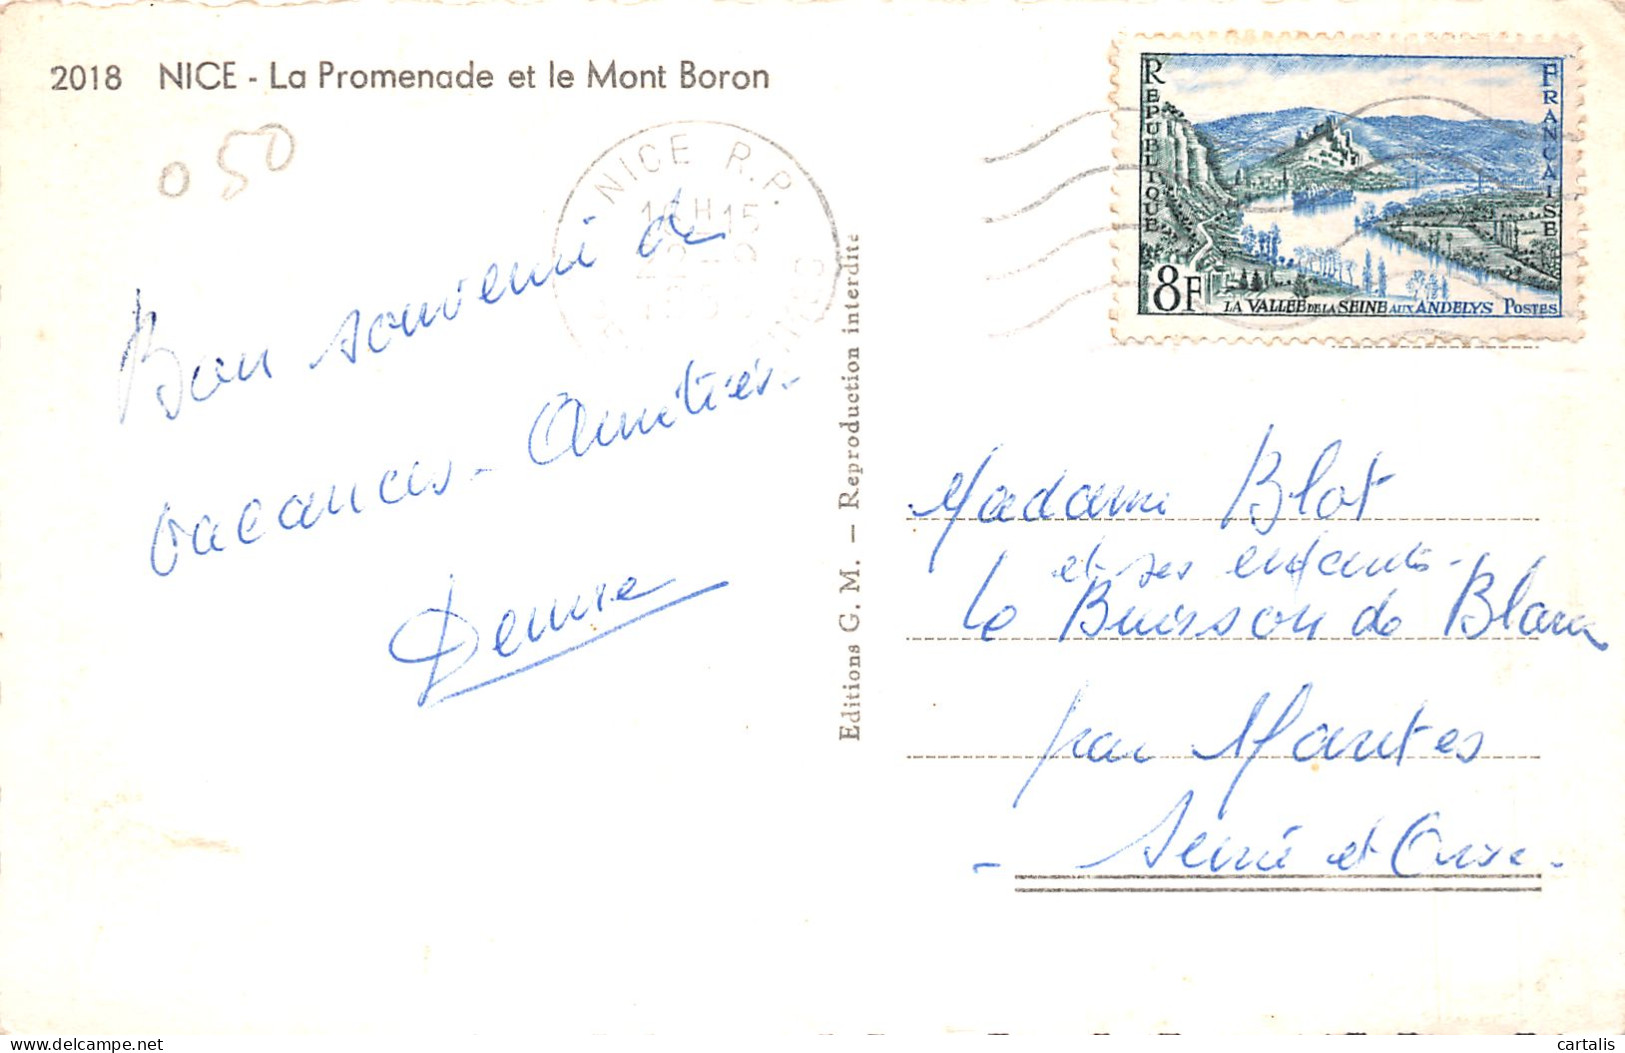 2018 NICE - La Promenade et le Mont Boron
050
NICE R.P.
RÉPUBLIQUE
FRANÇAISE
8F
LA VALLÉE DE LA SEINE AUX ANDELYS POSTES
Bon souvenir de
vacances - Amitiés -
Denise
Editions G. M. — Reproduction interdite
Madame Blot
et ses enfants -
Le Buisson de
par Mantes
- Seine et Oise -
cartalis
delcampe.net